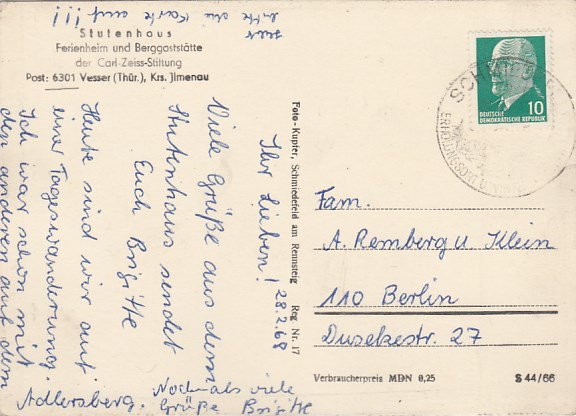 Hebt
bitte die Karte auf!!!
Stutenhaus
Ferienheim und Berggaststätte
der Carl-Zeiss-Stiftung
Post: 6301 Vesser (Thür.), Krs. Jlmenau
Ihr Lieben! 28.2.68
Viele Grüße aus dem
Stutenhaus sendet
Euch Brigitte
Heute sind wir auf
einer Tageswanderung.
Ich war schon mit
den anderen auf dem
Adlersberg. Nochmals viele
Grüße Brigitte
Foto-Kupfer, Schmiedefeld am Rennsteig Reg Nr. 17
10
DEUTSCHE
DEMOKRATISCHE REPUBLIK
Fam.
A. Remberg u Klein
110 Berlin
Dusekestr. 27
Verbraucherpreis MDN 0,25
S 44/66